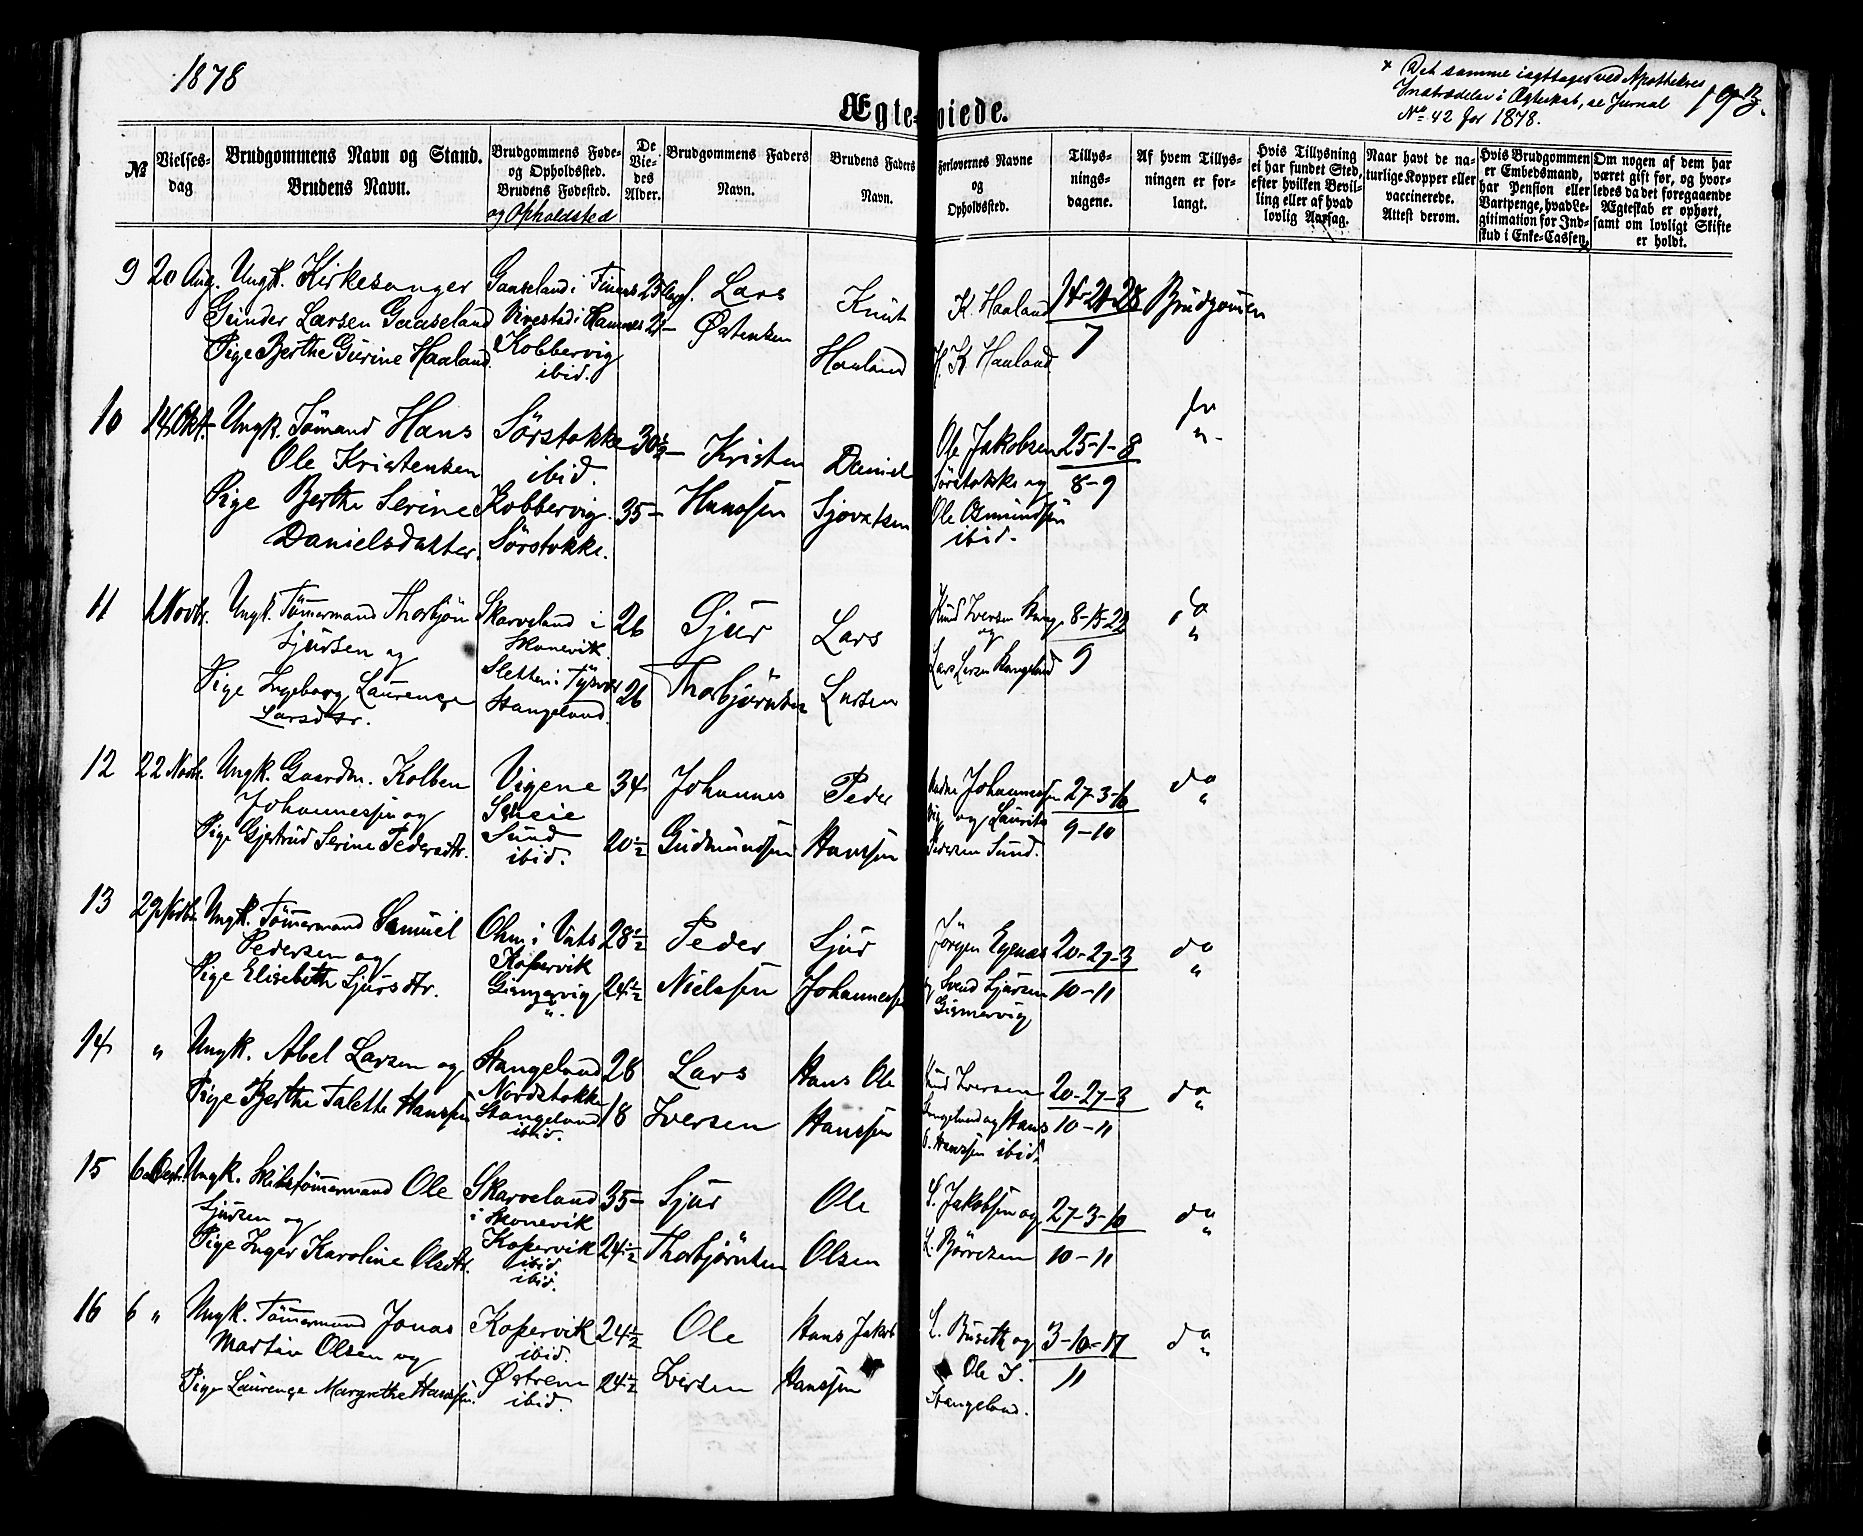 1878
Ægteviede.
× Det samme iagttages ved Apothekres
Indtrædelse i Ægteskab, se Jurnal
No 42 for 1878.
No
Vielses-
dag
Brudgommens Navn og Stand.
Brudens Navn.
Brudgommens Føde-
og Opholdssted.
Brudens Fødested.
og Opholdssted
De
Vie-
des
Alder.
Brudgommens Faders
Navn.
Brudens Faders
Navn.
Forlovernes Navne
og
Opholdssted.
Tillys-
nings-
dagene.
Af hvem Tillys-
ningen er for-
langt.
Hvis Tillysning
ei har fundet Sted,
efter hvilken Bevil-
ling eller af hvad
lovlig Aarsag.
Naar havt de na-
turlige Kopper eller
vaccinerede.
Attest derom.
Hvis Brudgommen
er Embedsmand,
har Pension eller
Vartpenge, hvad Le-
gitimation for Ind-
skud i Enke-Cassen
Om nogen af dem har
været gift før, og hvor-
ledes da det foregaaende
Ægteskab er ophørt,
samt om lovligt Skifte
er holdt.
9
20 Aug.
Ungk. Kirkesanger
Gunder Larsen Gaaseland
Pige Berthe Gurine Haaland.
Gaaseland i Finnøs
Kobbervig
ibid.
25
Lars
Østensen
Knut
Haaland
K. Haaland
H. K Haaland
14-21-28
7
Brudgomen
10
14 Okt.
Ungk. Sömand Hans
Ole Kristensen
Pige Berthe Serine
Danielsdatter.
Sörstokke
ibid.
Kobbervig.
Sörstokke.
30½
35
Kristen
Hanssen
Daniel
Sjovatsen
Ole Jakobsen
Sørstokke og
Ole Osmundsen
ibid.
25-1-8
8-9
do
"
11
1 Novbr.
Ungk. Tömmermand Thorbjön
Sjursen og
Pige Ingeborg Laurenze
Larsdtr.
Skarveland i
Skonevik.
Sletten i Tysvær
Stangeland.
26
26
Sjur
Thorbjörnsen
Lars
Larsen
Knud Iversen Stange
og
Lars Larsen Stangeland
8-15-22
9
do
"
12
22 Novbr.
Ungk. Gaardm. Kolben
Johannessen og
Pige Gjertrud Serine Pedersdtr.
Vigene
Skeie
Sund
ibid.
34
20½
Johannes
Gudmundsen
Peder
Hanssen
Johannessen
Vig og Laurits
Pedersen Sund.
27-3-10
9-10
do
"
13
29 Novbr.
Ungk. Tömmermand Samuel
Pedersen og
Pige Elisebeth Sjursdtr.
Ohm i Vats
Kopervik
Gismarvig
"
28½
24½
Peder
Nielssen
Sjur
Johannessen
Jörgen Egenæs
og Svend Sjursen
Gismervig
20-27-3
10-11
do
"
14
"
Ungk. Abel Larsen og
Pige Berthe Talette Hanssen
Stangeland
Nordstokke
Stangeland
ibid.
28
18
Lars
Iversen
Hans Ole
Hanssen
Knud Iversen
Stangeland og Hans
O. Hanssen ibid.
20-27-3
10-11
do
"
15
6 Decbr.
Ungk. Skibstömmermand Ole
Sjursen og
Pige Inger Karoline Olsdtr.
Skarveland
i Skonevik
Kopervik
ibid
ibid.
35
24½
Sjur
Thorbjörnsen
Ole
Olsen
S. Jakobsen og
L. Börresen
27-3-10
10-11
do
"
16
6 "
Ungk. Tömmermand Jonas
Martin Olsen og
Pige Laurenze Margrethe Hanssen.
Kopervik
ibid.
Østrem
ibid.
24½
24½
Ole
Iversen
Hans Jakob
Hanssen
L. Buseth og
Ole I.
Stangeland.
3-10-17
11
do
"